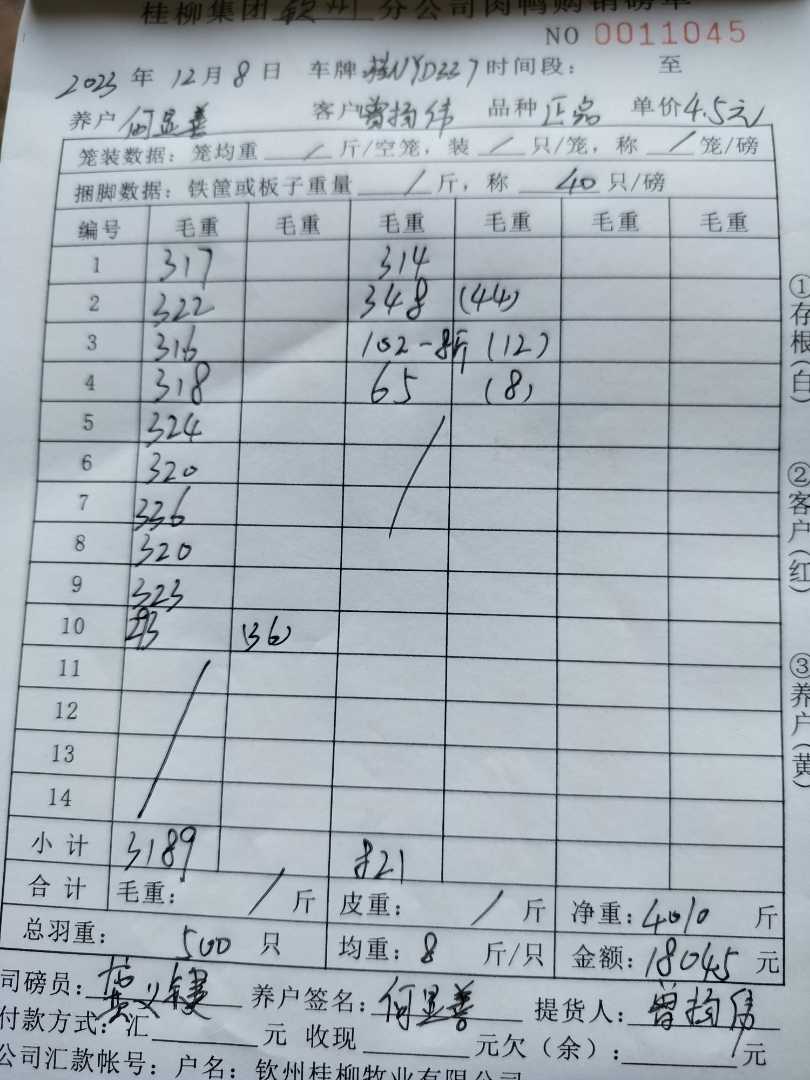 桂柳集团钦州分公司肉鸭购销磅单
NO 0011045
2023 年 12 月 8 日 车牌 桂NYD227 时间段: 至
养户 何显善 客户 曾扬伟 品种 正品 单价 4.5元
笼装数据: 笼均重 / 斤/空笼, 装 / 只/笼, 称 / 笼/磅
捆脚数据: 铁筐或板子重量 / 斤, 称 40 只/磅
编号 毛重 毛重 毛重 毛重 毛重 毛重
1 317 314
2 322 348 (44)
3 316 102-8斤 (12)
4 318 65 (8)
5 324
6 320
7 336
8 320
9 323
10 (36)
11
12
13
14
小计 3189 821
合计 毛重: / 斤 皮重: / 斤 净重: 4010 斤
总羽重: 500 只 均重: 8 斤/只 金额: 18045 元
司磅员: 养户签名: 何显善 提货人: 曾扬伟
付款方式: 汇 元 收现 元欠(余): 元
公司汇款帐号: 户名: 钦州桂柳牧业有限公司
①存根(白)
②客户(红)
③养户(黄)